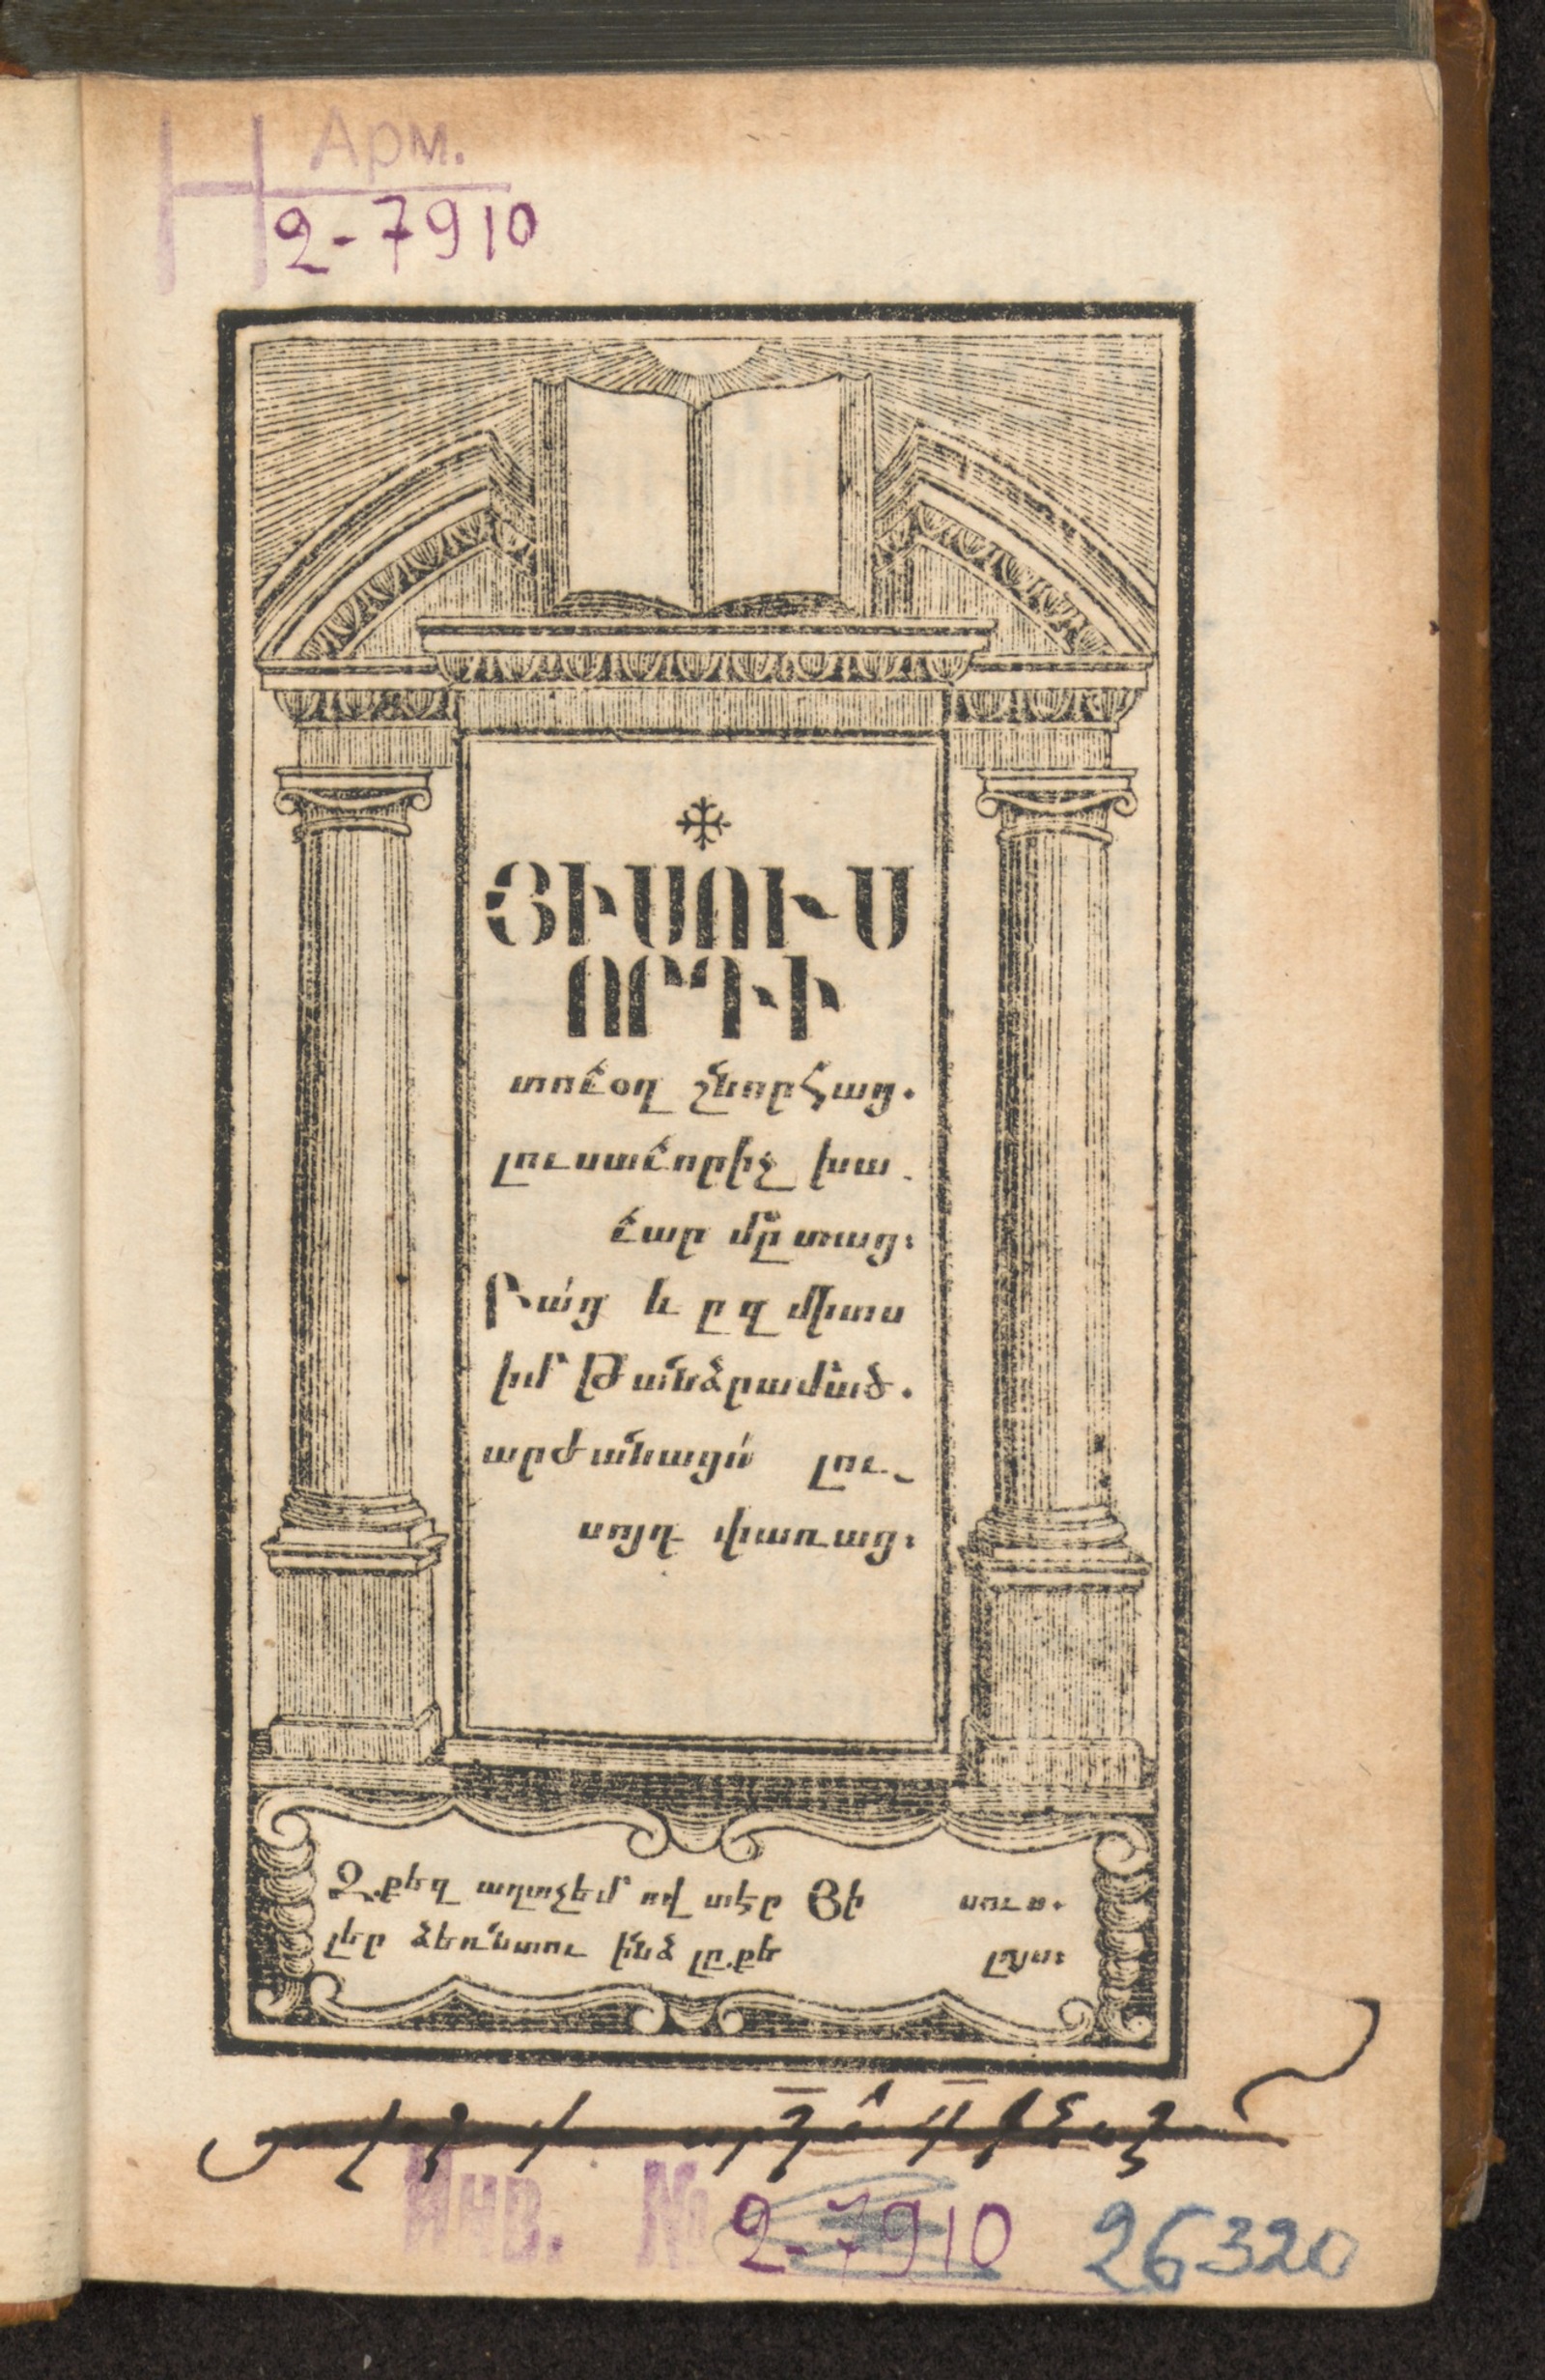 Н Арм.
2-7910
ՅԻՍՈՒՍ
ՈՐԴԻ
տուօղ շնորհաց.
լուսաւորիչ խա-
ւար մըտաց։
Բա՛ց և ըզ միտս
իմ թանձրամած.
արժանացո՛ լու-
սոյդ փառաց։
Զքեզ աղաչեմ ով տէր Յի սուս.
լեր ձեռնտու ինձ լըքե լոյս։
Инв. № 2-7910 26320